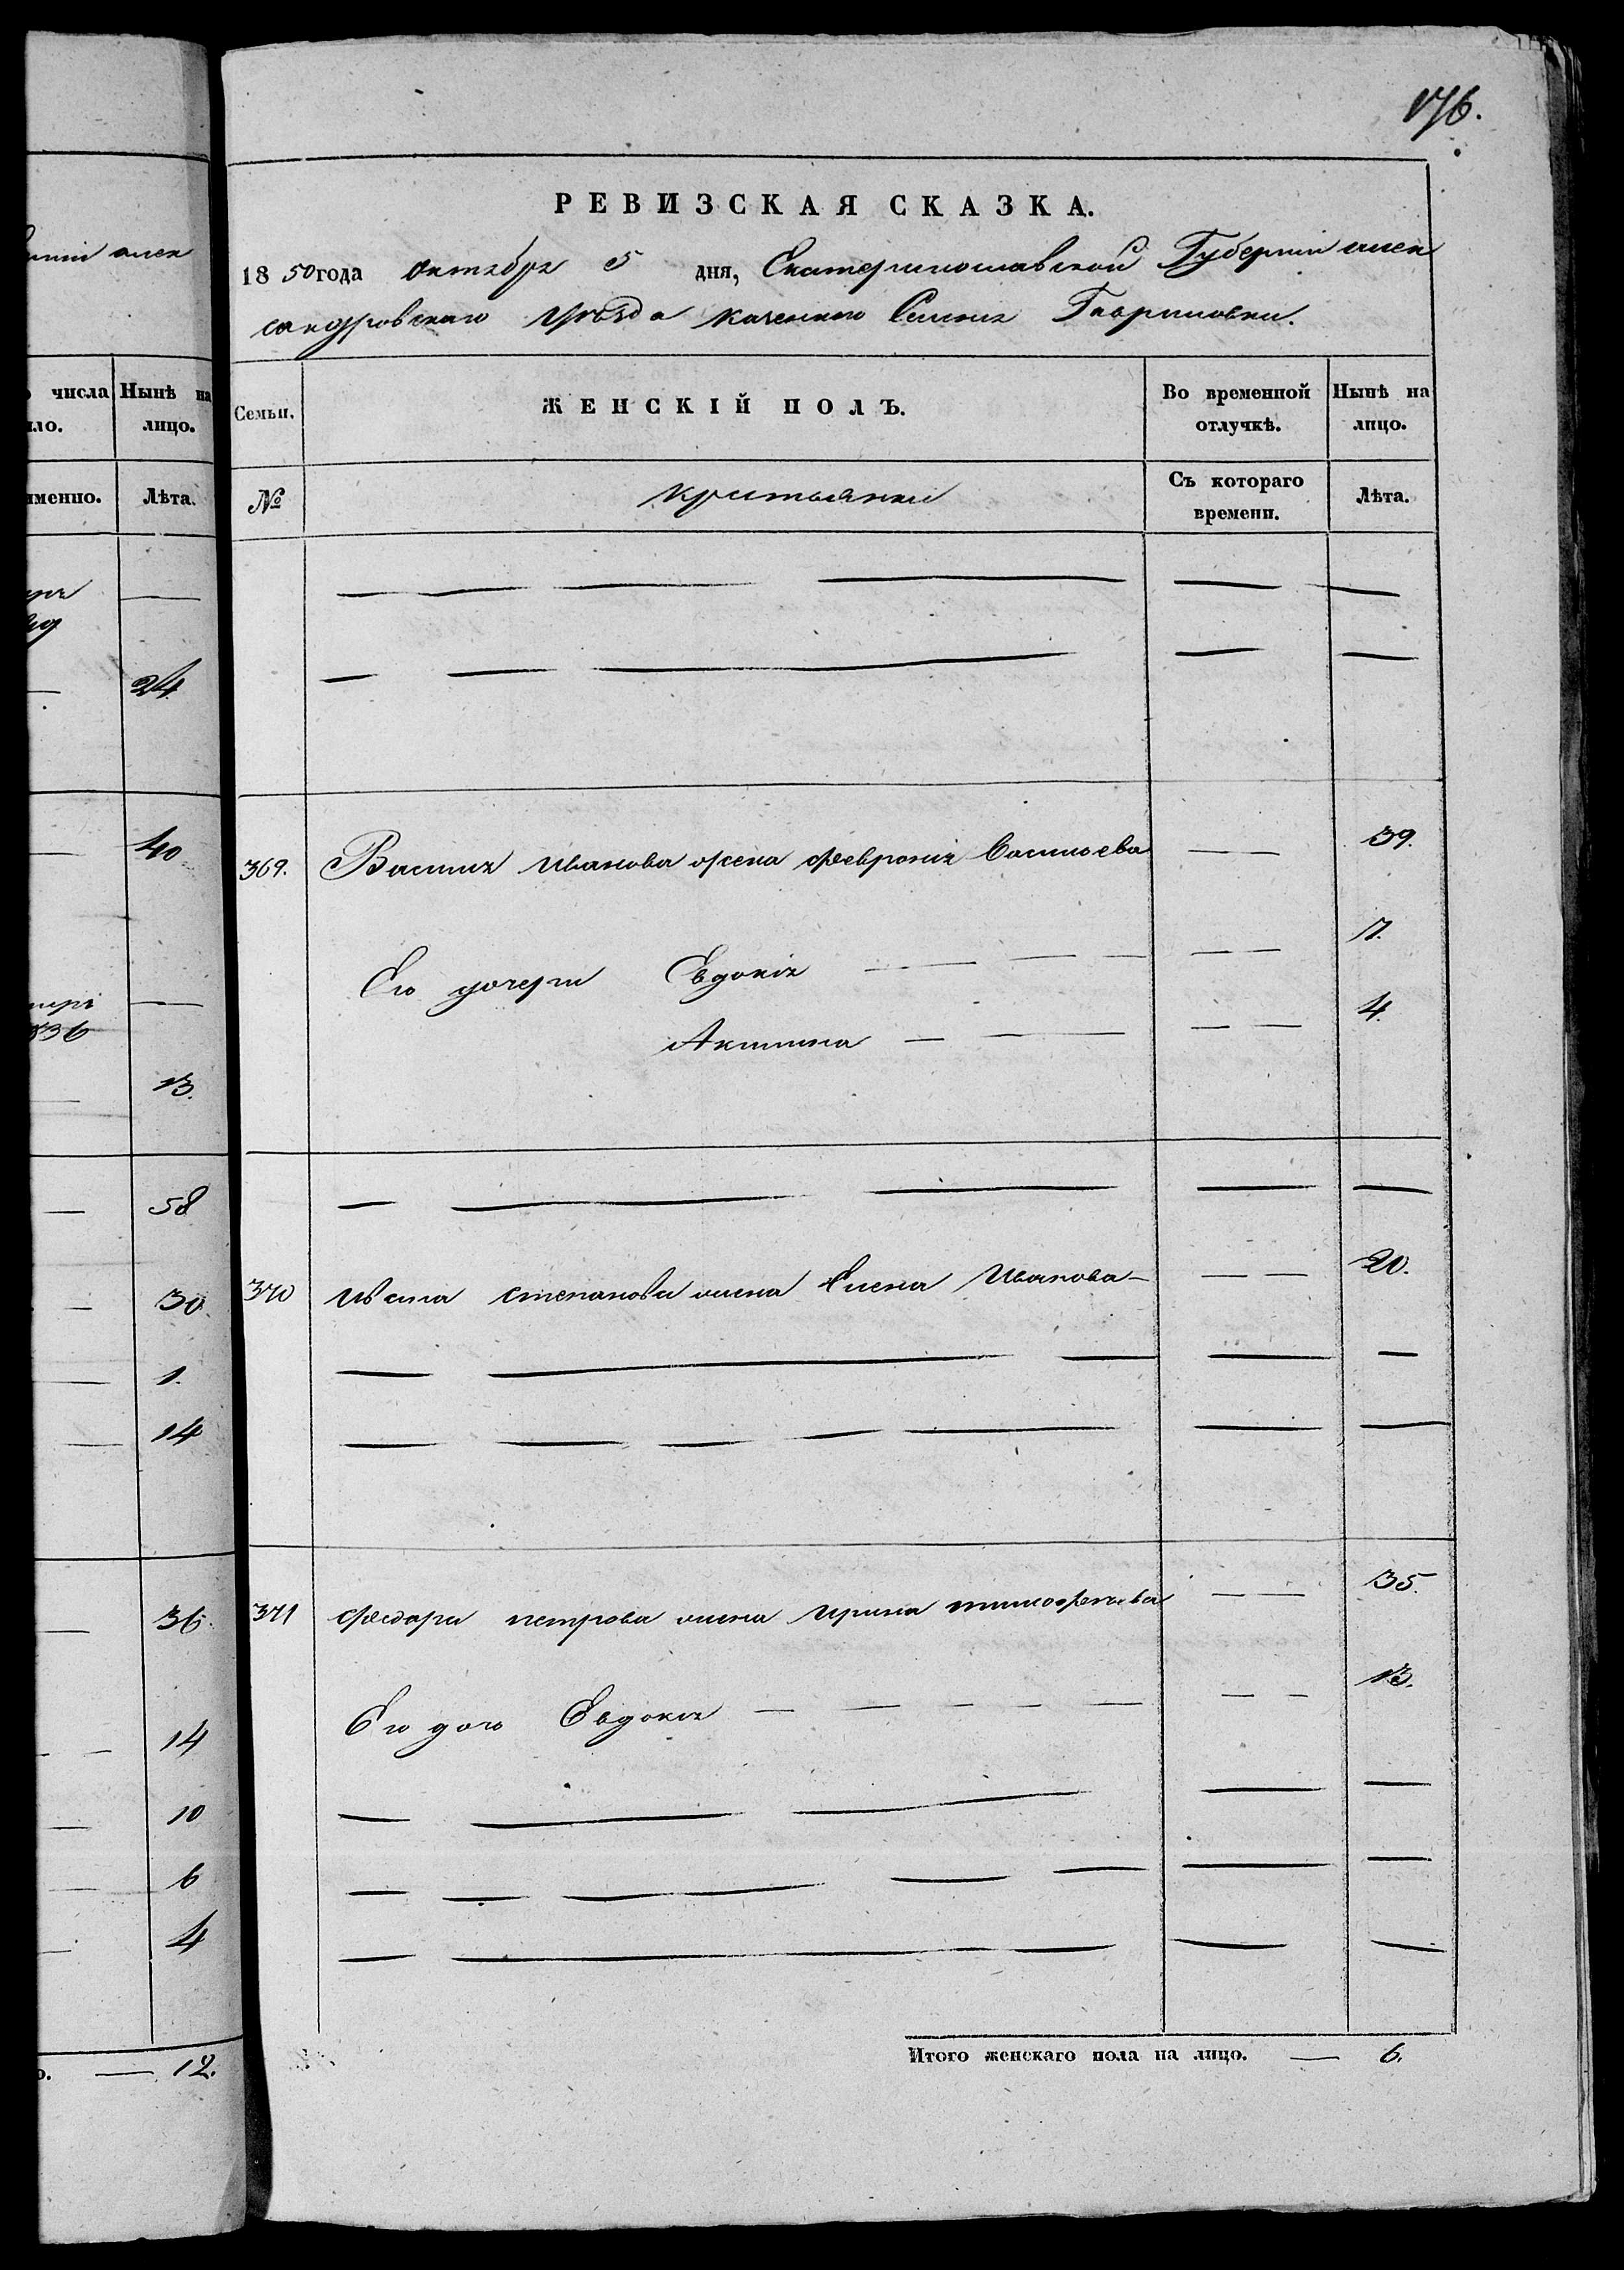 176.
РЕВИЗСКАЯ СКАЗКА.
1850 года октября 5 дня, Екатеринославской Губернии алек
сандровского уѣзда казенного Селения Гавриловки.
числа Нынѣ на
ло. лицо.
именно. Лѣта.
24
40
836
13.
58
30.
1.
14
36.
14
10
6
4
12.
Семьи. ЖЕНСКІЙ ПОЛЪ. Во временной отлучкѣ. Нынѣ на лицо.
№ крестьянки Съ котораго времени. Лѣта.
369. Василия Иванова жена Феврония Васильева 39.
Его дочери Евдокия 7.
Акилина 4.
370 Степанова жена Елена Иванова 20.
371 Федора петрова жена Ирина тимофеева 35.
Его дочь Евдокия 13.
Итого женскаго пола на лицо. — 6.